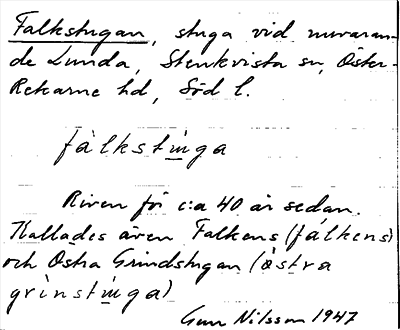 Falkstugan, stuga vid nuvaran-
de Lunda, Stenkvista sn, Öster-
Rekarne hd, Söd l.
fàlkstɯga
Riven för c:a 40 år sedan.
Kallades även Falkens (fálkens)
och Östra Grindstugan (òstra
grìnstɯga)
Gun Nilsson 1947